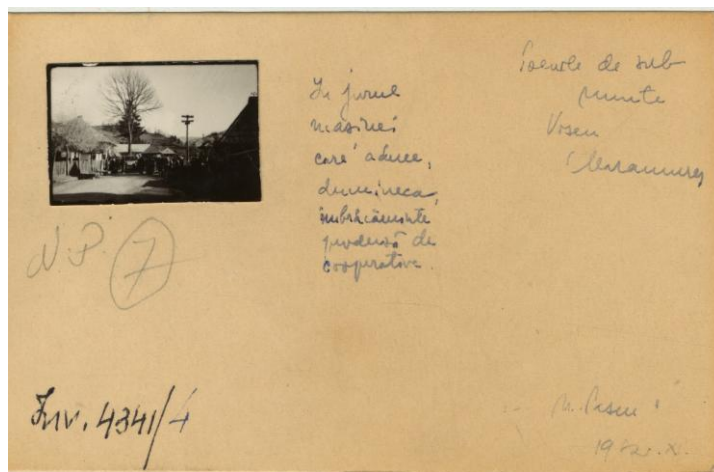 În jurul
masinei
care aduce,
dumineca,
îmbrăcăminte
produsă de
cooperative.
Poenile de sub
munte
Viseu
Maramureș
N.P. 7
Inv. 4341/4